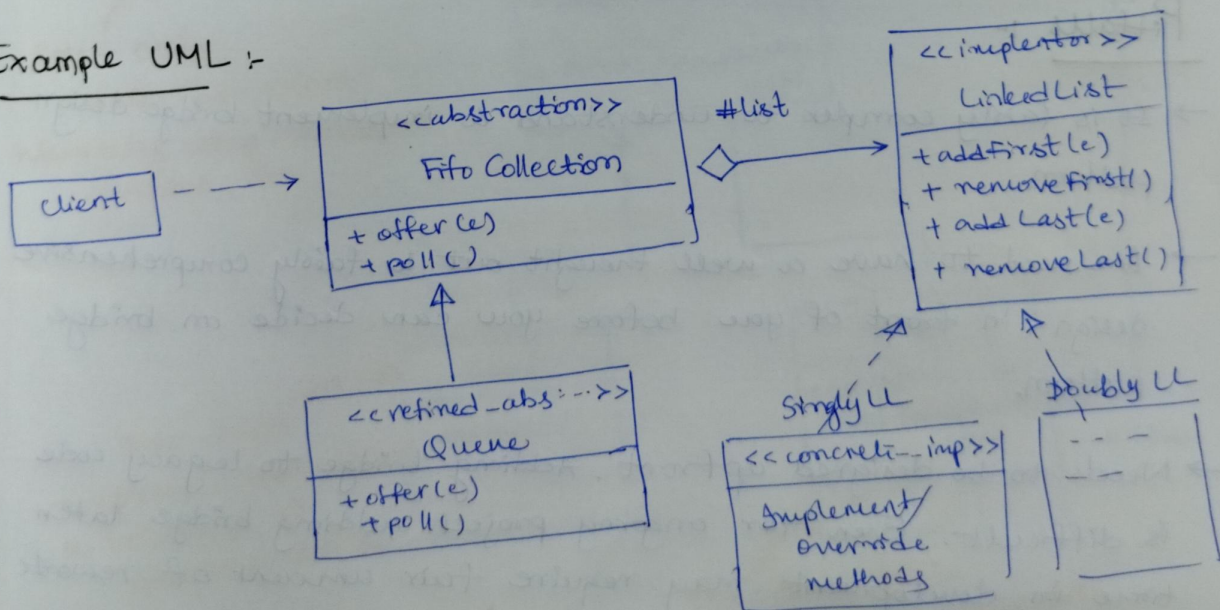 Example UML :-
client
<<abstraction>>
Fifo Collection
+ offer(e)
+ poll()
#list
<<implentor>>
LinkedList
+ addFirst(e)
+ removeFirst()
+ addLast(e)
+ removeLast()
<<refined_abs...>>
Queue
+ offer(e)
+ poll()
Singly LL
<<concrete_imp>>
Implement/
override
methods
Doubly LL